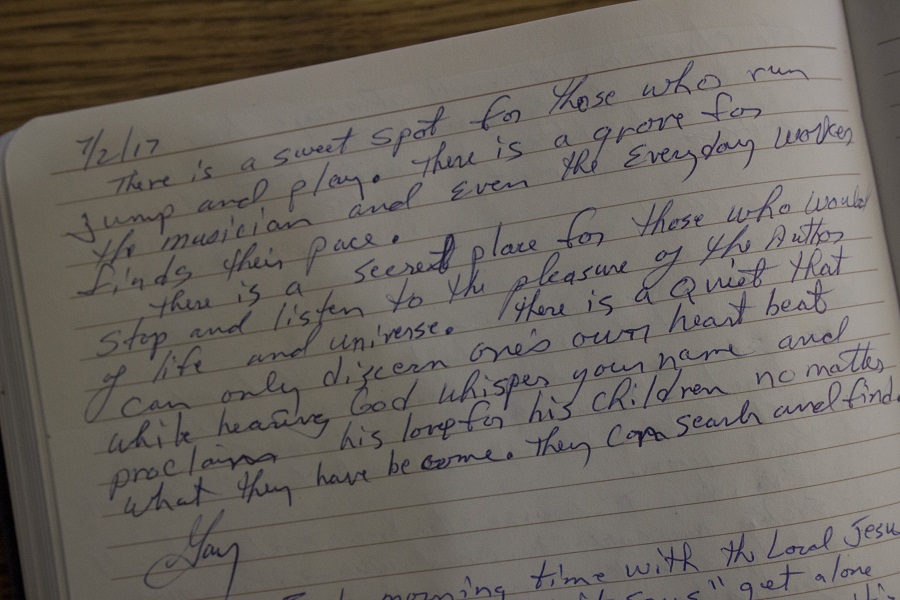 7/2/17
There is a sweet spot for those who run
jump and play. There is a grove for
the musician and even the Everyday worker
finds their pace.
There is a secret place for those who would
stop and listen to the pleasure of the Author
of life and universe. There is a Quiet that
can only discern one's own heart beat
while hearing God whisper your name and
proclaim his love for his children no matter
what they have become. They can search and find.
Gary
morning time with the Lord Jesus
" get alone